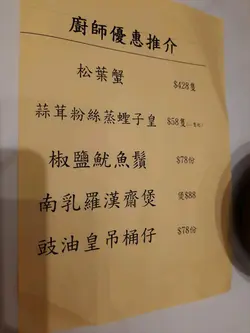 廚師優惠推介
松葉蟹 $428隻
蒜茸粉絲蒸蟶子皇 $58隻
椒鹽魷魚鬚 $78份
南乳羅漢齋煲 煲$88
豉油皇吊桶仔 $78份